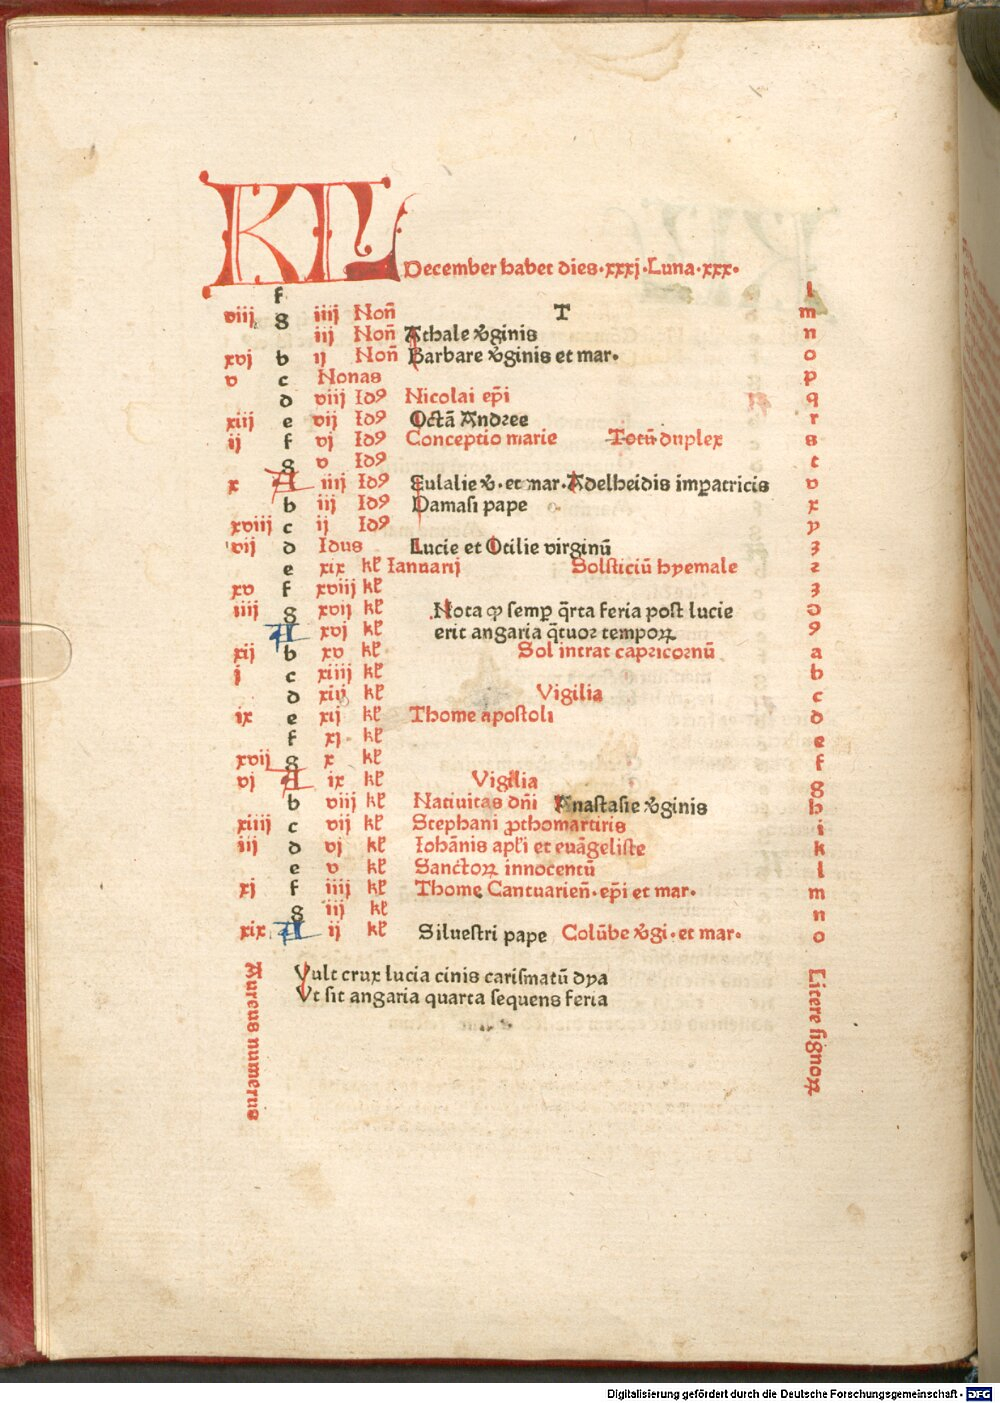 KL
December habet dies·xxxj·Luna·xxx·
f l
viij g iiij Non̄ T m
iij Non̄ Athale v̄ginis n
xvj b ij Non̄ Barbare v̄ginis et mar· o
v c Nonas p
d viij Idꝰ Nicolai ep̄i q
xiij e vij Idꝰ Octā Andree r
ij f vj Idꝰ Conceptio marie Totū duplex s
g v Idꝰ t
x A iiij Idꝰ Eulalie v̄·et mar·Adelheidis imꝑatricis v
b iij Idꝰ Damasi pape x
xviij c ij Idꝰ y
vij d Idus Lucie et Otilie virginū z
e xix kł Ianuarij Solsticiū hyemale ꝛ
xv f xviij kł ꝫ
iiij g xvij kł Nota ꝙ semꝑ q̄rta feria post lucie
A xvj kł erit angaria q̄tuor tempoꝝ 9
xij b xv kł Sol intrat capricornū a
j c xiiij kł b
d xiij kł Vigilia c
ix e xij kł Thome apostoli d
f xj kł e
xvij g x kł f
vj A ix kł Vigilia g
b viij kł Natiuitas dn̄i Anastasie v̄ginis h
xiiij c vij kł Stephani ꝓthomartiris i
iij d vj kł Iohānis apl̄i et euāgeliste k
e v kł Sanctoꝝ innocentū l
xj f iiij kł Thome Cantuarien̄·ep̄i et mar· m
g iij kł n
xix A ij kł Siluestri pape Colūbe v̄gi·et mar· o
Vult crux lucia cinis carismatū dya
Vt sit angaria quarta sequens feria
Aureus numerus
Litere signoꝝ
Digitalisierung gefördert durch die Deutsche Forschungsgemeinschaft - DFG